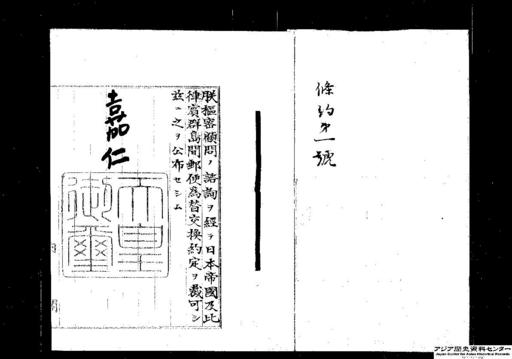 條約第一號
朕樞密顧問ノ諮詢ヲ經テ日本帝國及比
律賓群島間郵便為替交換約定ヲ裁可シ
茲ニ之ヲ公布セシム
嘉仁
天皇
御璽
アジア歴史資料センター
Japan Center for Asian Historical Records